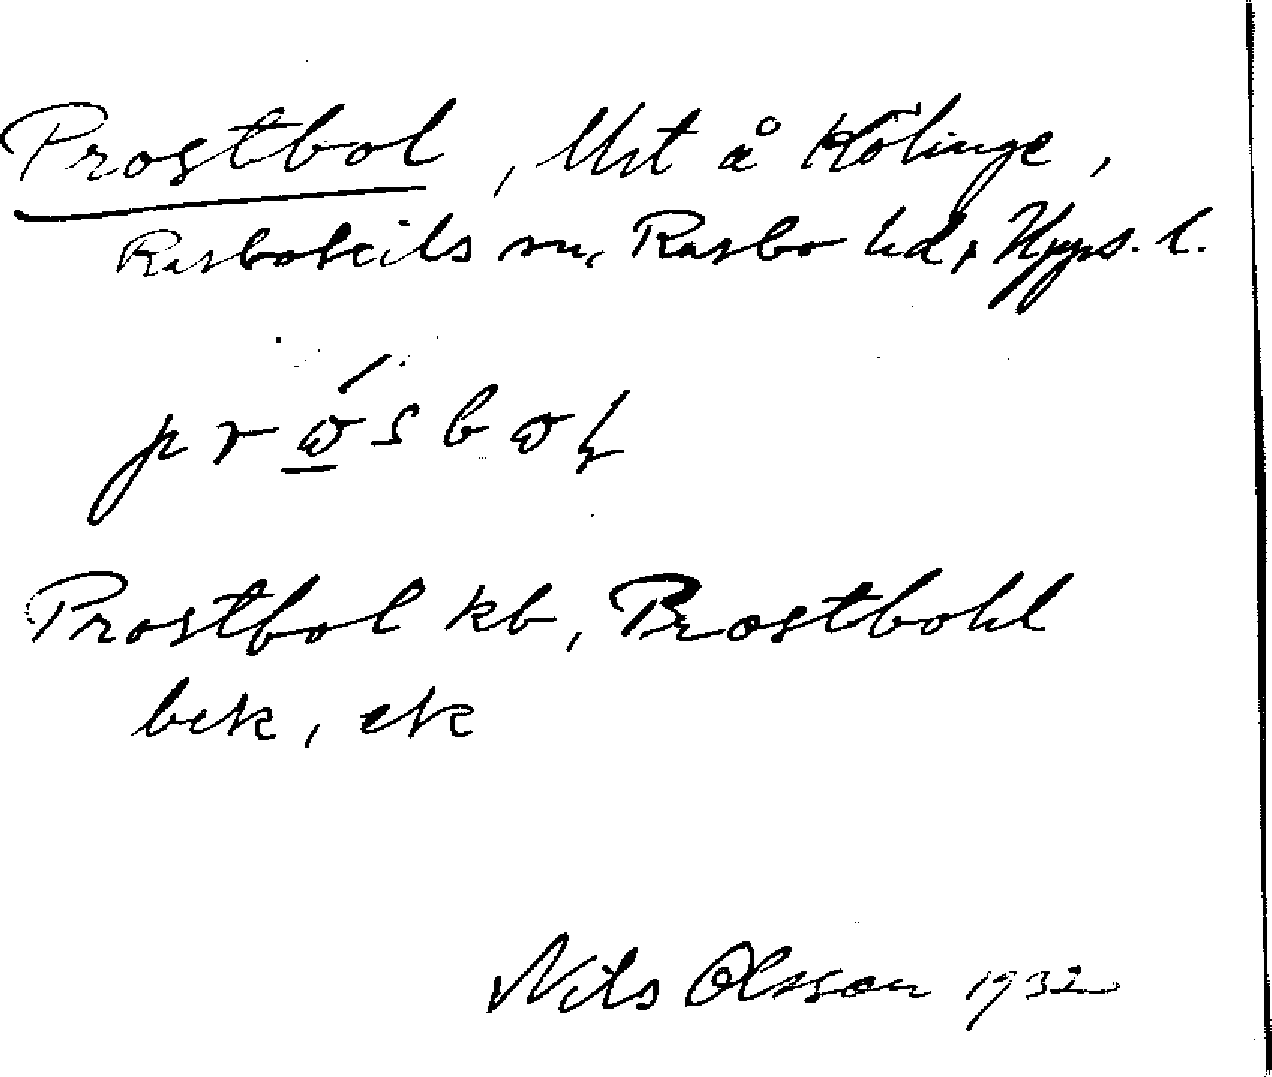 Prostbol, Urt å Kölinge,
Rasbokils sn, Rasbo hd, Upps. l.
Prostbol kb, Prostbohl
bek, ek
Nils Olsson 1932